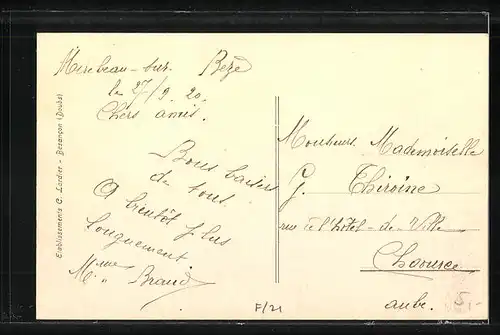 Mirebeau-sur-Bèze
le 27/9.20.
Chers amis.
Bons baisers
de tous.
A bientôt plus
longuement
Mme Braud
Etablissements C. Lardier - Besançon (Doubs)
Monsieur. Mademoiselle
G. Thiroine
rue de l'hôtel-de-Ville
Chaource
aube.
F/21
5.-